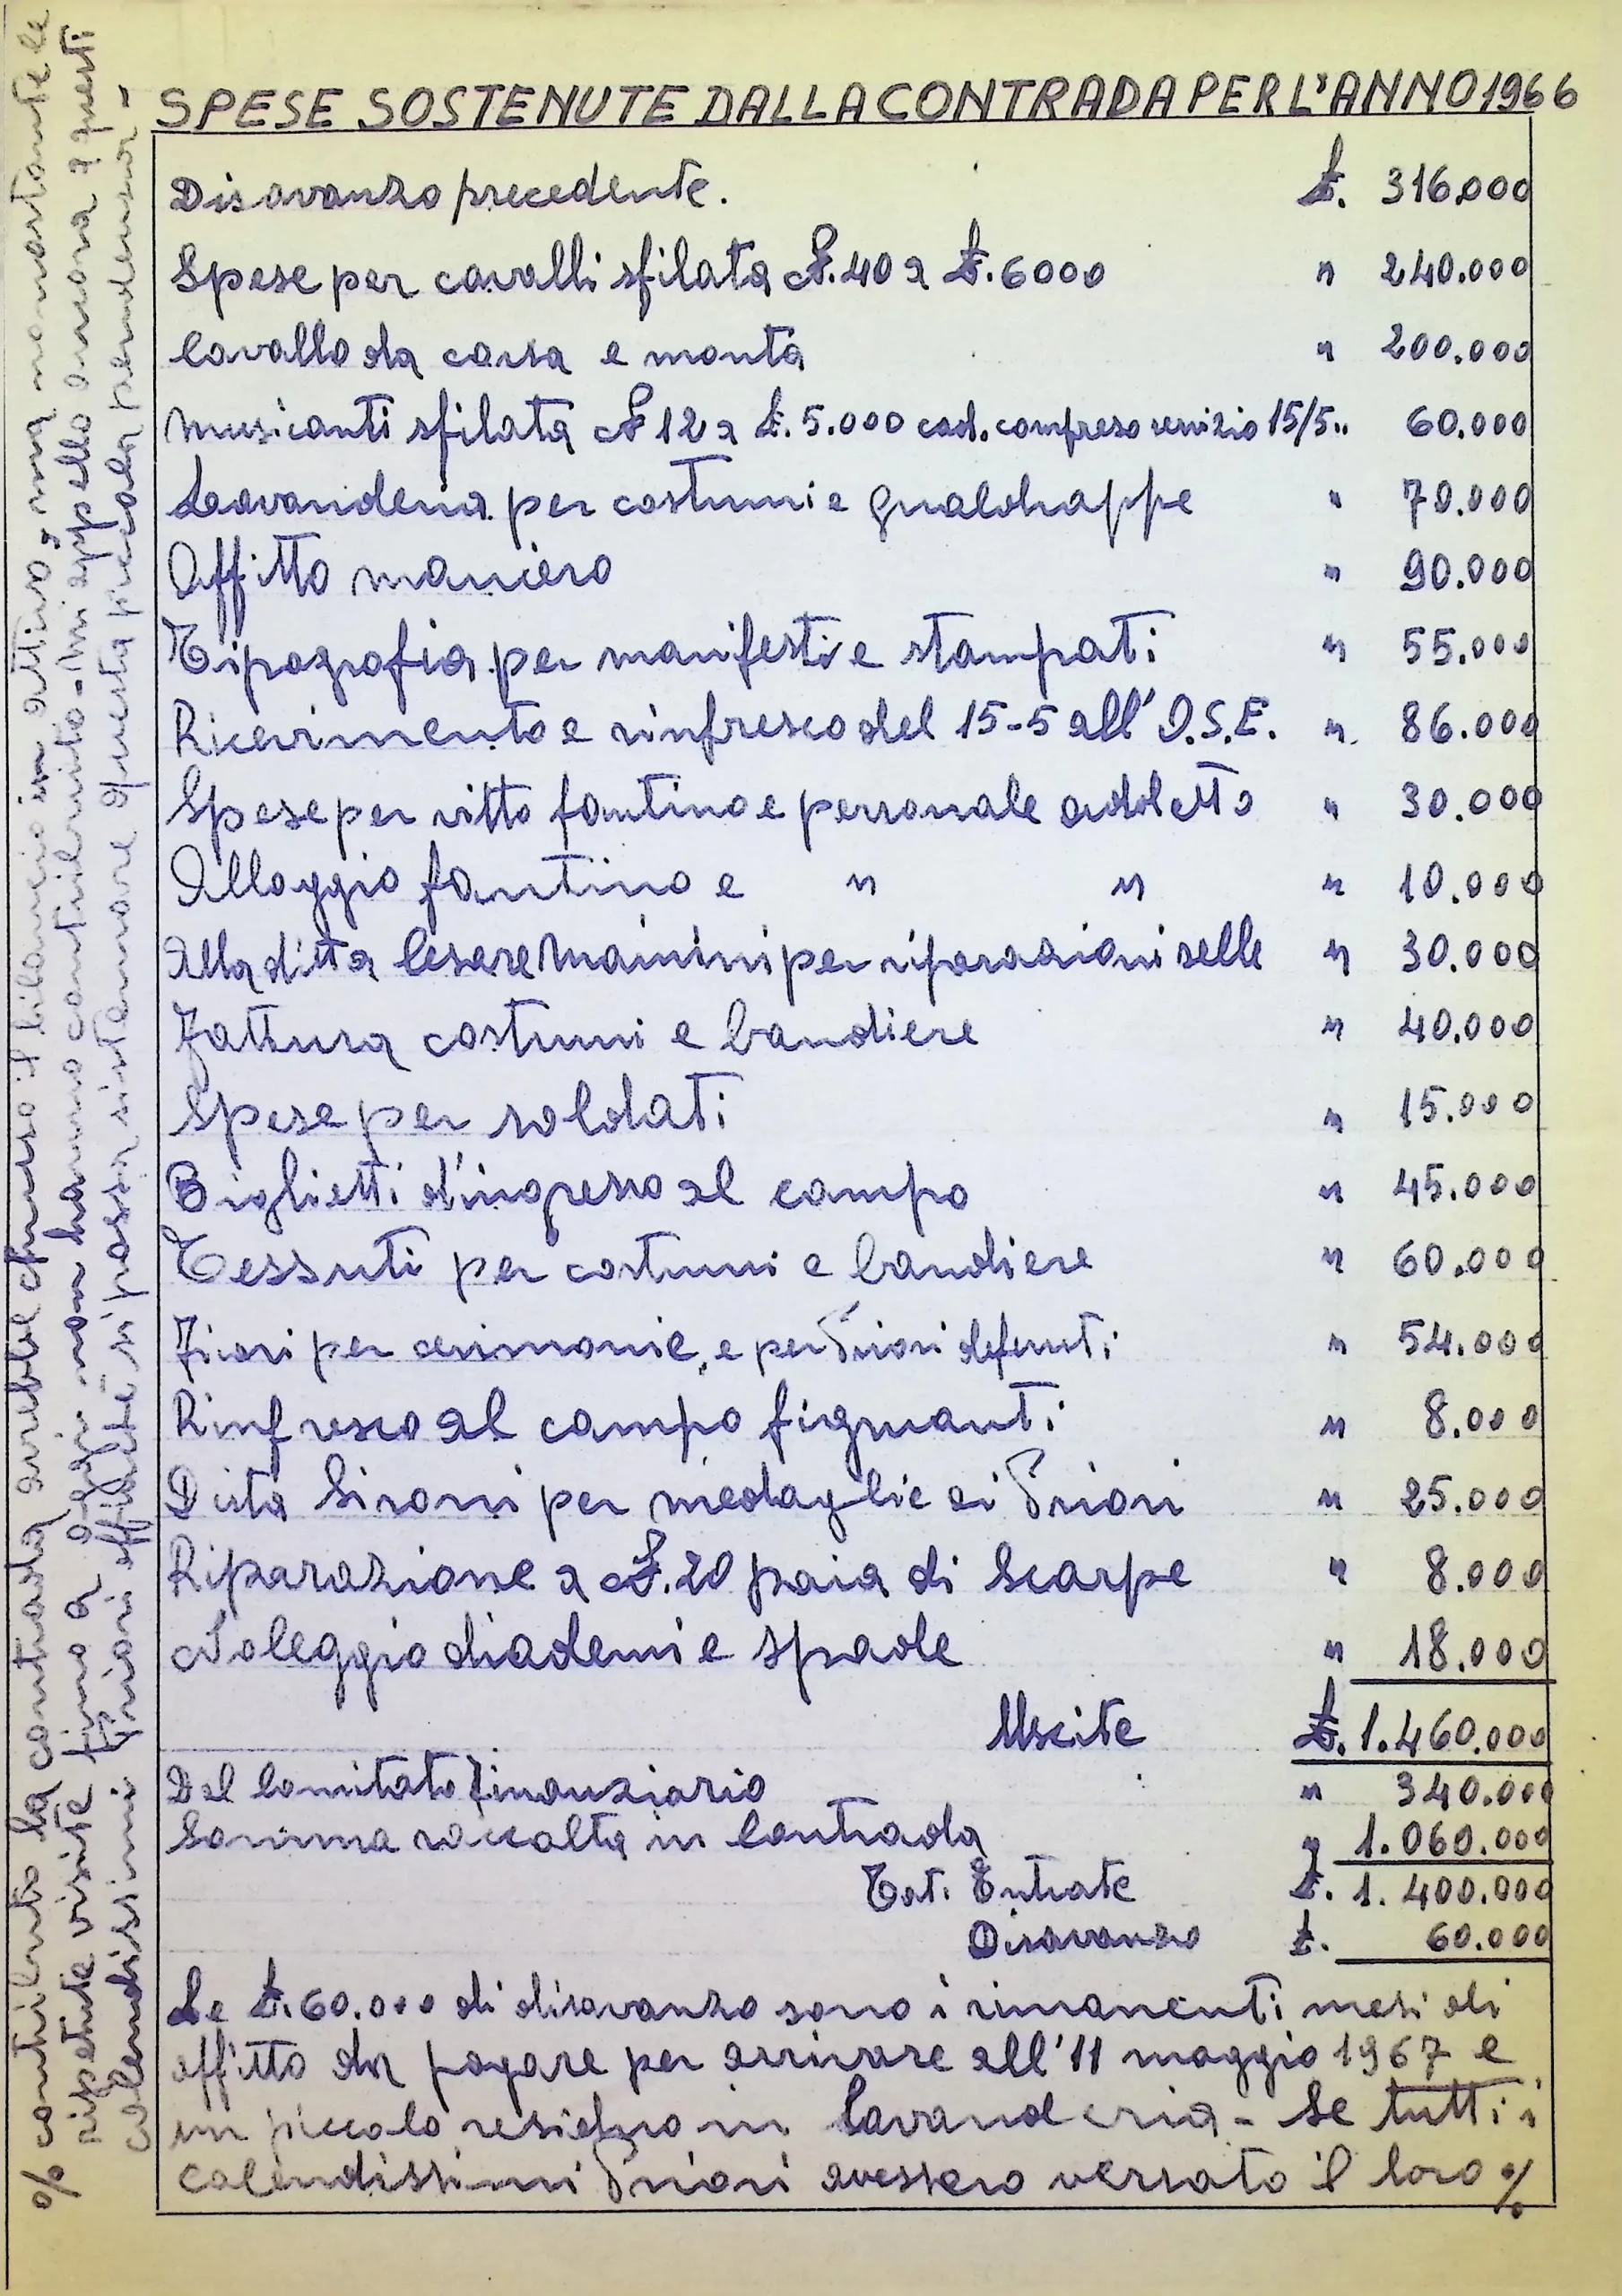 SPESE SOSTENUTE DALLA CONTRADA PER L'ANNO 1966
Disavanzo precedente. £. 316.000
Spese per cavalli sfilata N. 40 a £. 6000 " 240.000
Cavallo da corsa e monta " 200.000
Musicanti sfilata N 12 a £. 5.000 cad. compreso servizio 15/5 " 60.000
Lavanderia per costumi e gualdrappe " 70.000
Affitto maniero " 90.000
Tipografia per manifesti e stampati " 55.000
Ricevimento e rinfresco del 15-5 all' O.S.E. " 86.000
Spese per vitto fantino e personale addetto " 30.000
Alloggio fantino e " " " 10.000
Alla ditta Cesare Mainini per riparazioni selle " 30.000
Fattura costumi e bandiere " 40.000
Spese per soldati " 15.000
Biglietti d'ingresso al campo " 45.000
Tessuti per costumi e bandiere " 60.000
Fiori per cerimonie, e per Priori defunti " 54.000
Rinfresco al campo figuranti " 8.000
Ditta Sironi per medaglie ai Priori " 25.000
Riparazione a N. 20 paia di scarpe " 8.000
Noleggio diademi e spade " 18.000
Uscite £. 1.460.000
Dal Comitato Finanziario " 340.000
Somma raccolta in Contrada " 1.060.000
Tot. Entrate £. 1.400.000
Disavanzo £. 60.000
Le £. 60.000 di disavanzo sono i rimanenti mesi di
affitto da pagare per arrivare all'11 maggio 1967 e
un piccolo residuo in lavanderia - Se tutti i
calendissimi Priori avessero versato il loro %
% contributo la contrada avrebbe chiuso il bilancio in attivo, ma nonostante le
ripetute visite fino a oggi non hanno contribuito - Mi appello ancora a questi
calendissimi Priori affinché si possa sistemare questa piccola pendenza -